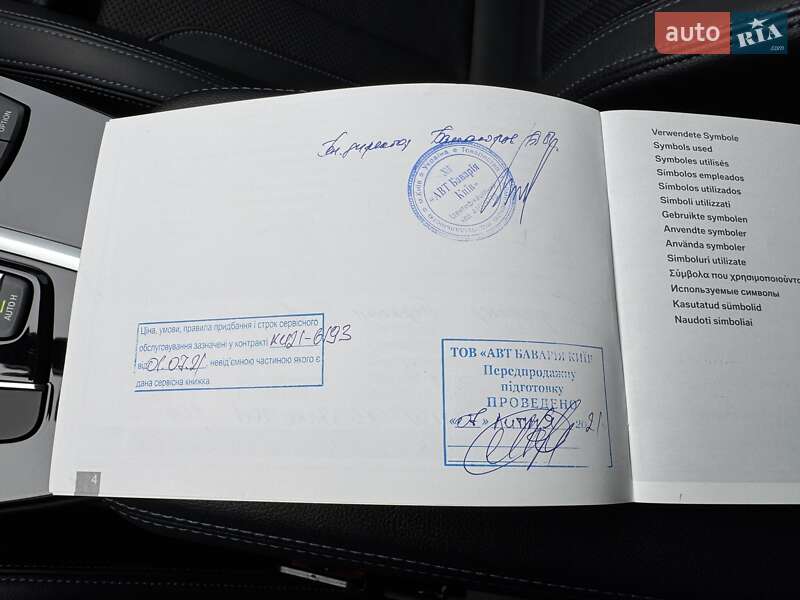 auto RIA.com
OPTION
AUTO H
Ген. директор
Україна
«АВТ Баварія
Київ»
Ціна, умови, правила придбання і строк сервісного
обслуговування зазначені у контракті КИ21-6193
від 01.07.21, невід'ємною частиною якого є
дана сервісна книжка.
ТОВ «АВТ БАВАРІЯ КИЇВ
Передпродажну
підготовку
ПРОВЕДЕНО
«07» липня 2021
4
Verwendete Symbole
Symbols used
Symboles utilisés
Símbolos empleados
Símbolos utilizados
Simboli utilizzati
Gebruikte symbolen
Anvendte symboler
Använda symboler
Simboluri utilizate
Σύμβολα που χρησιμοποιούντα
Используемые символы
Kasutatud sümbolid
Naudoti simboliai